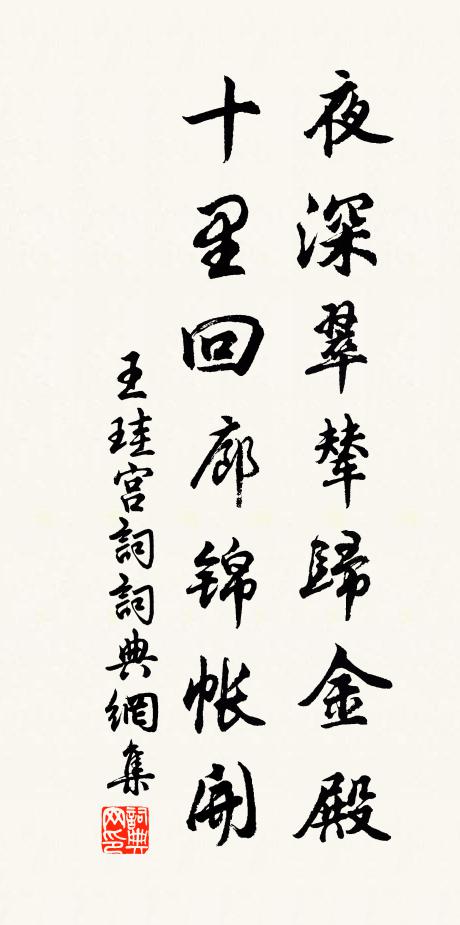 夜深翠輦歸金殿
十里回廊錦帳開
王珪宮詞詞典網集
詞典网印